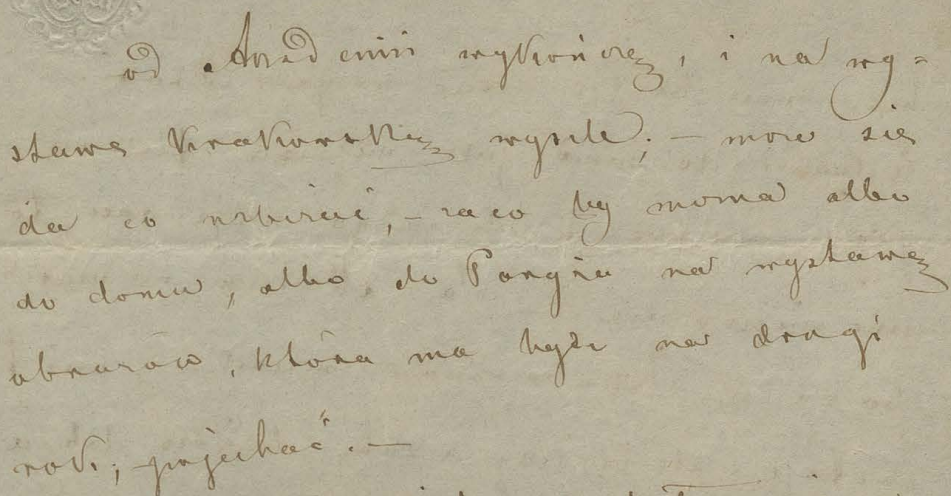 od Akademii wykończę, i na wy=
stawę Krakowską wyszle; – może się
da co uzbierać, – za co by można albo
do domu, albo do Paryża na wystawę
obrazów, która ma bydź na drugi
rok, pojechać. –